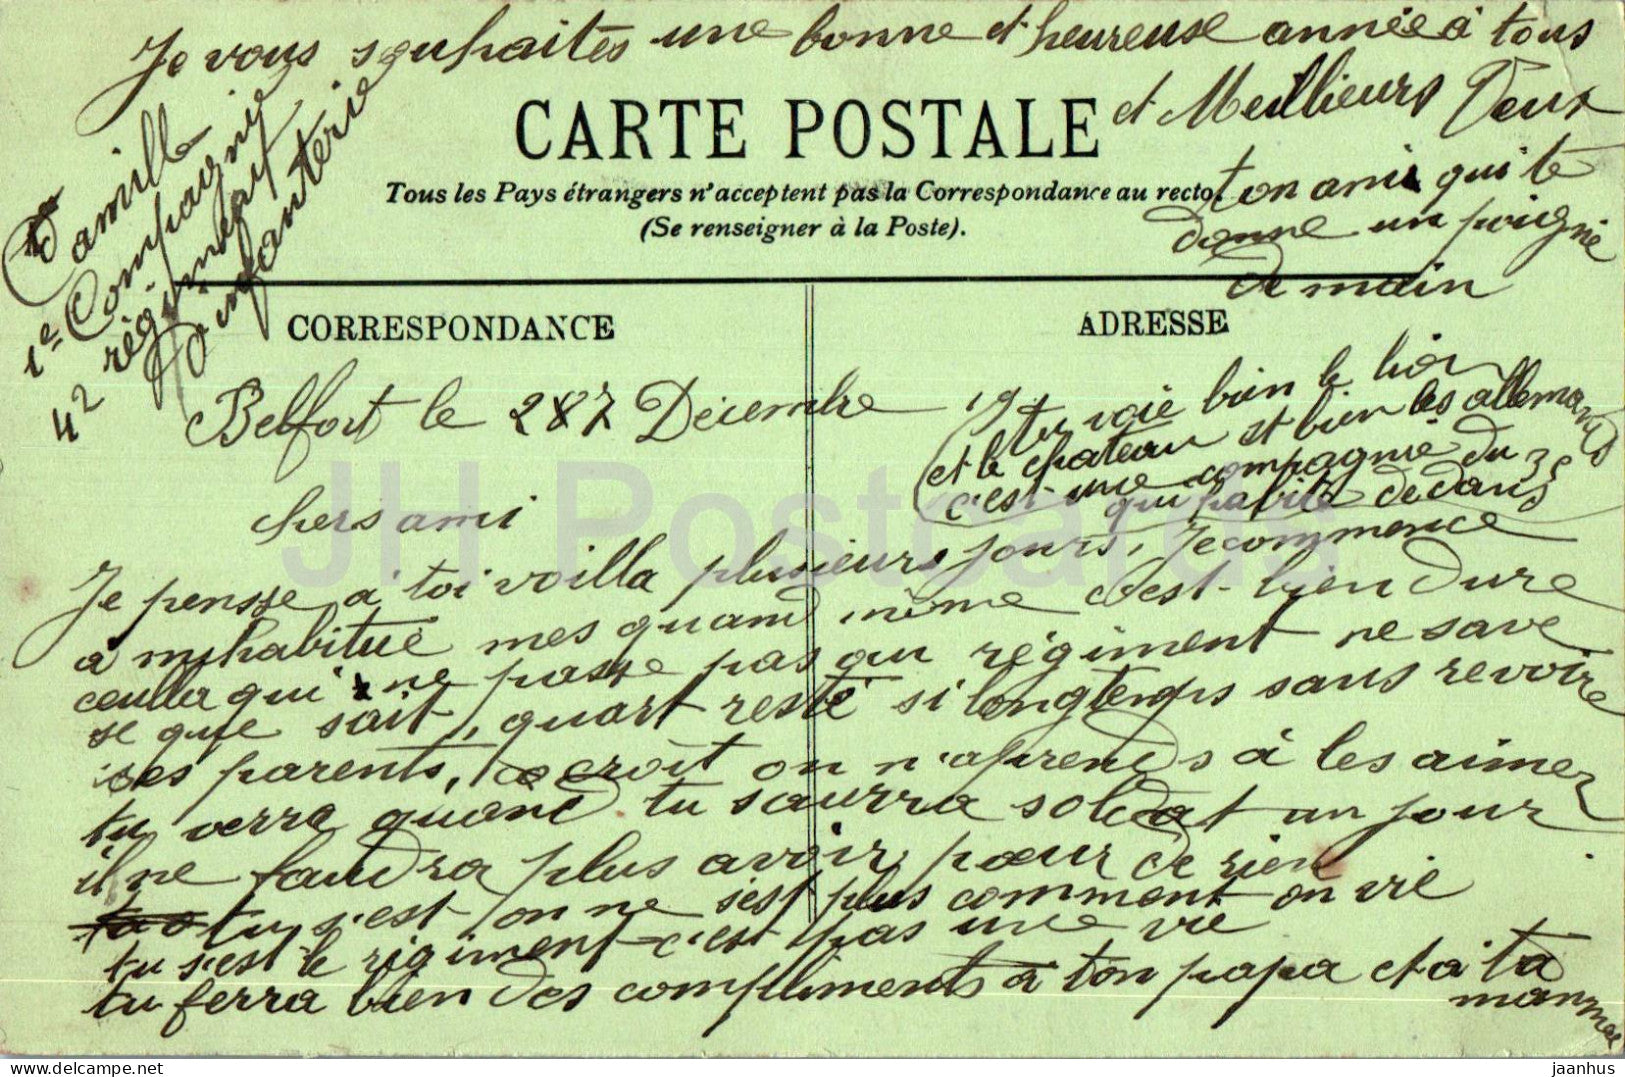 Je vous souhaites une bonne et heureuse année à tous
et Meillieurs Veux
ton ami qui te
donne un poignie
de main
Camille
1e Compagnie
42 régiment
D'infanterie
CARTE POSTALE
Tous les Pays étrangers n'acceptent pas la Correspondance au recto.
(Se renseigner à la Poste).
CORRESPONDANCE
ADRESSE
Belfort le 27 Décembre 19
tu voie bien le lion
et le chateau et bien les allemands
c'est une compagnie du 35
qui habite dedans
chers ami
Je pensse à toi voilla plusieurs jours, Je commence
à m'habitué mes quand même c'est bien dure
ceulla qui ne passe pas au régiment ne save
se que sait, quart resté si longtemps sans revoire
ses parents, croit on n'aprends à les aimez
tu verra quand tu saurra soldat un jour
il ne faudra plus avoir pœur de rien
tu s'est on ne s'est plus comment on vie
tu s'est le régiment c'est pas une vie
tu ferra bien des compliments à ton papa et à ta
manman
JH Postcards
© jaanhus